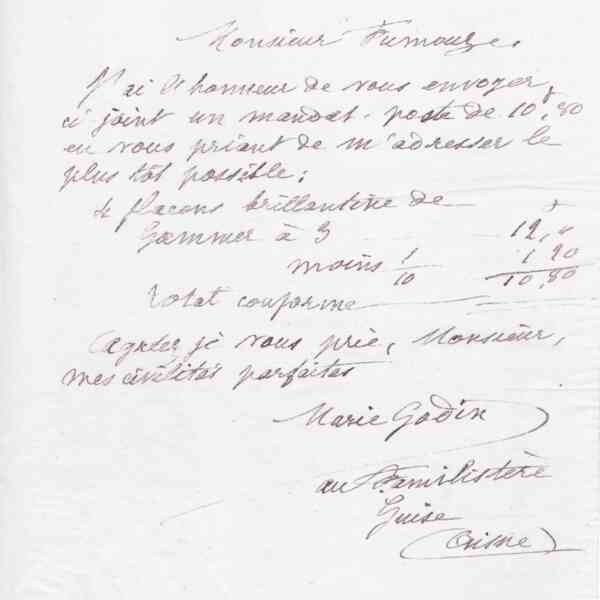 Monsieur Fumouze,
J'ai l'honneur de vous envoyer
ci joint un mandat-poste de 10f,80
en vous priant de m'adresser le
plus tôt possible;
4 flacons brillantine de
Gammer à 3 12f,"
moins 1/10 1 20
Total conforme 10,80
Agréez je vous prie, Monsieur,
mes civilités parfaites
Marie Godin
au Familistère
Guise
(Aisne)